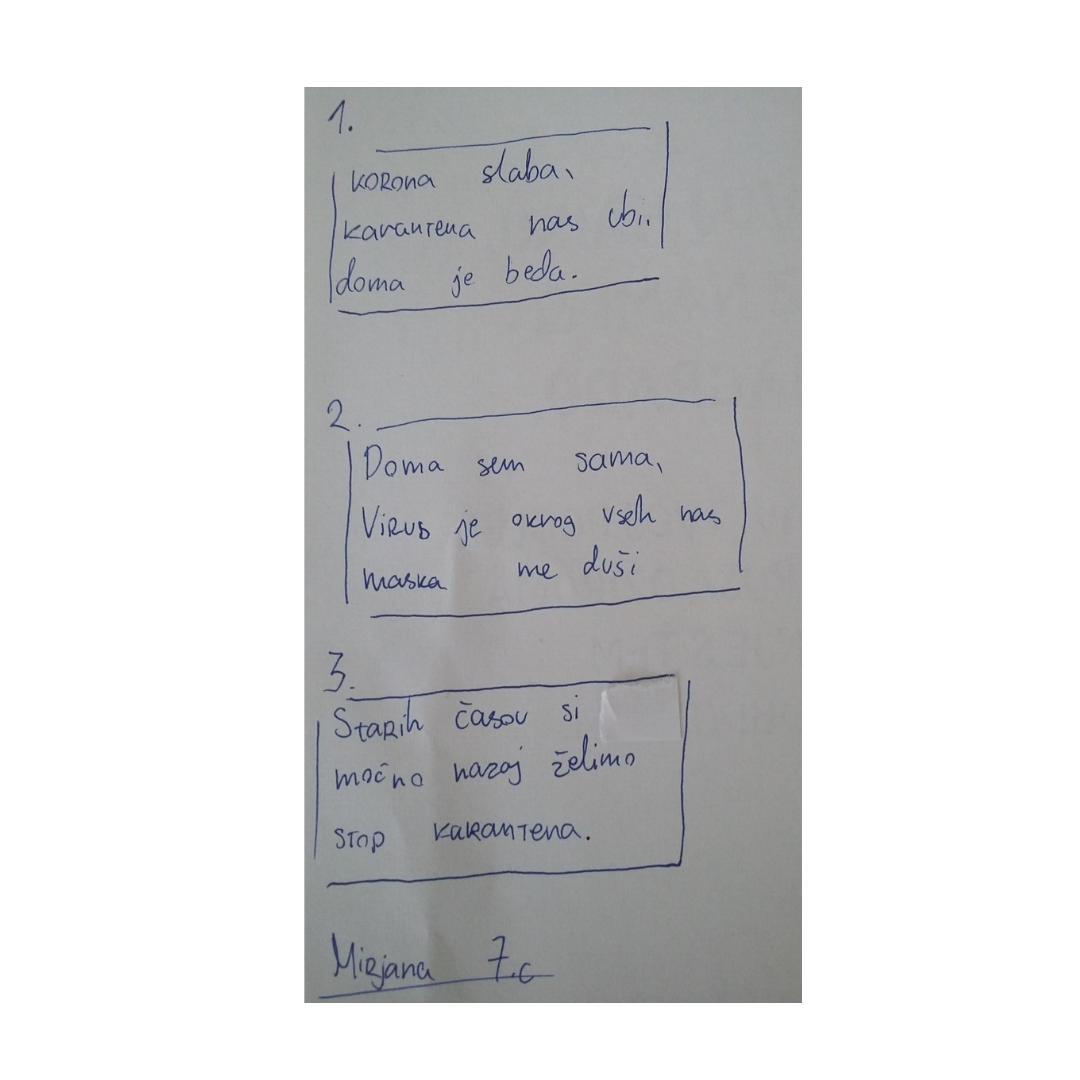 1.
korona slaba,
karantena nas ubi.
doma je beda.
2.
Doma sem sama,
Virus je okrog vseh nas
maska me duši
3.
Starih časov si
močno nazaj želimo
stop karantena.
Mirjana 7.c